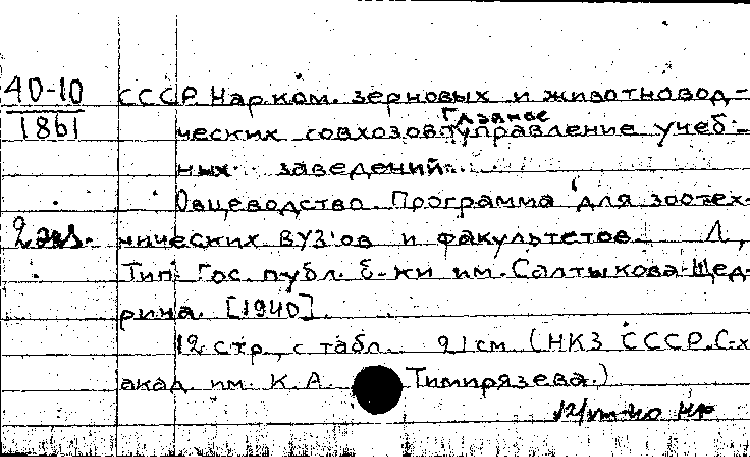 40-10
1861
СССР. Нарком. зерновых и животновод-
ческих совхозов. Главное управление учеб-
ных заведений.
Овцеводство. Программа для зоотех-
2 экз. нических ВУЗ'ов и факультетов. Л.,
Тип. Гос. публ. б-ки им. Салтыкова-Щед-
рина. [1940].
12 стр., с табл. 21 см (НКЗ СССР. С.-х.
акад. им. К. А. Тимирязева.)